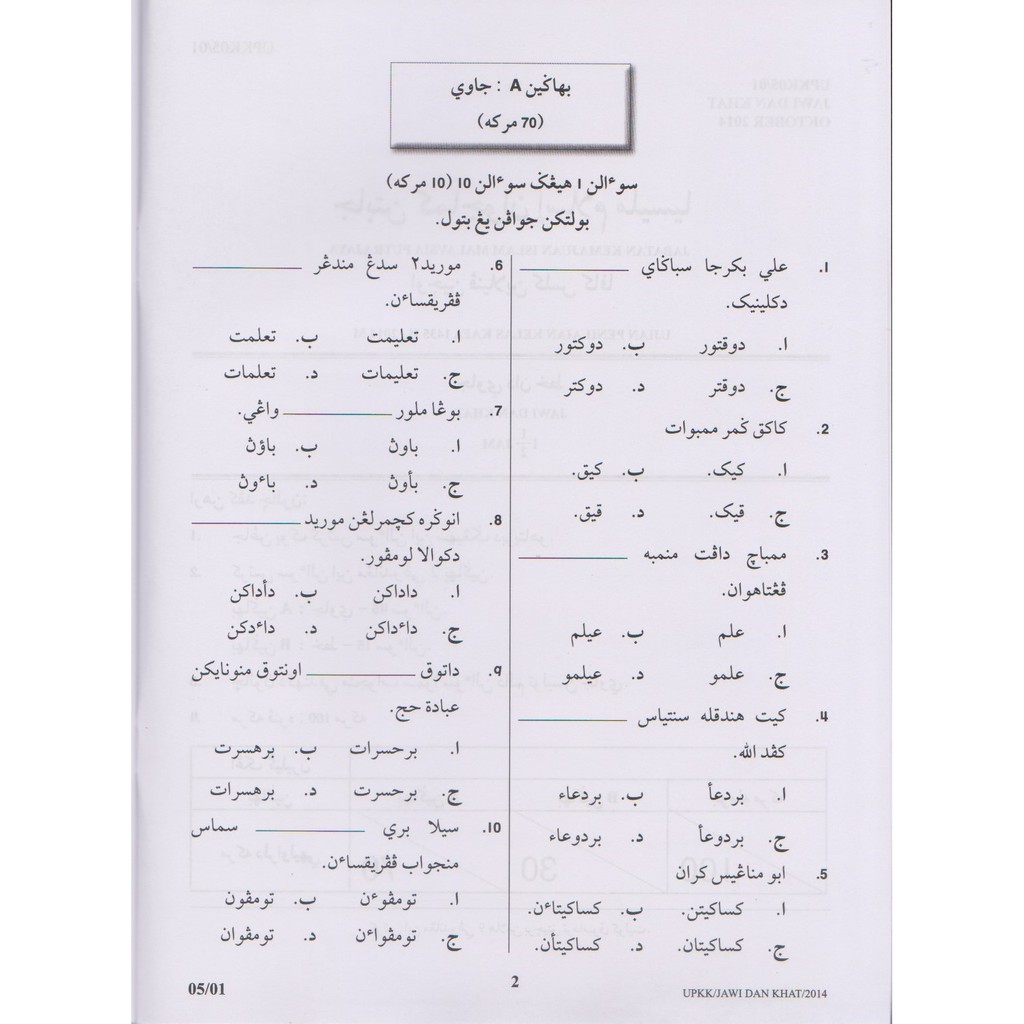 بهاݢين A : جاوي
(70 مركه)
سوءالن 1 هيڠݢ سوءالن 10 (10 مركه)
بولتكن جواڤن يڠ بتول.
1. علي بكرجا سباݢاي ________
دكلينيک.
ا. دوقتور ب. دوكتور
ج. دوقتر د. دوكتر
2. كاكق ݢمر ممبوات
ا. كيک. ب. كيق.
ج. قيک. د. قيق.
3. ممباچ داڤت منمبه ________
ڤڠتاهوان.
ا. علم ب. عيلم
ج. علمو د. عيلمو
4. كيت هندقله سنتياس ________
كڤد الله.
ا. بردعأ ب. بردعاء
ج. بردوعأ د. بردوعاء
5. ابو مناڠيس كران
ا. كساكيتن. ب. كساكيتاءن.
ج. كساكيتان. د. كساكيتأن.
6. موريد٢ سدڠ مندڠر ________
ڤڤريقساءن.
ا. تعليمت ب. تعلمت
ج. تعليمات د. تعلمات
7. بوڠا ملور ________ واڠي.
ا. باوڽ ب. باؤڽ
ج. بأوڽ د. باءوڽ
8. انوݢره كچمرلڠن موريد ________
دكوالا لومڤور.
ا. داداكن ب. دأداكن
ج. داءداكن د. داءدكن
9. داتوق ________ اونتوق منونايكن
عبادة حج.
ا. برحسرات ب. برهسرت
ج. برحسرت د. برهسرات
10. سيلا بري ________ سماس
منجواب ڤڤريقساءن.
ا. تومڤوءن ب. تومڤون
ج. تومڤواءن د. تومڤوان
05/01
2
UPKK/JAWI DAN KHAT/2014